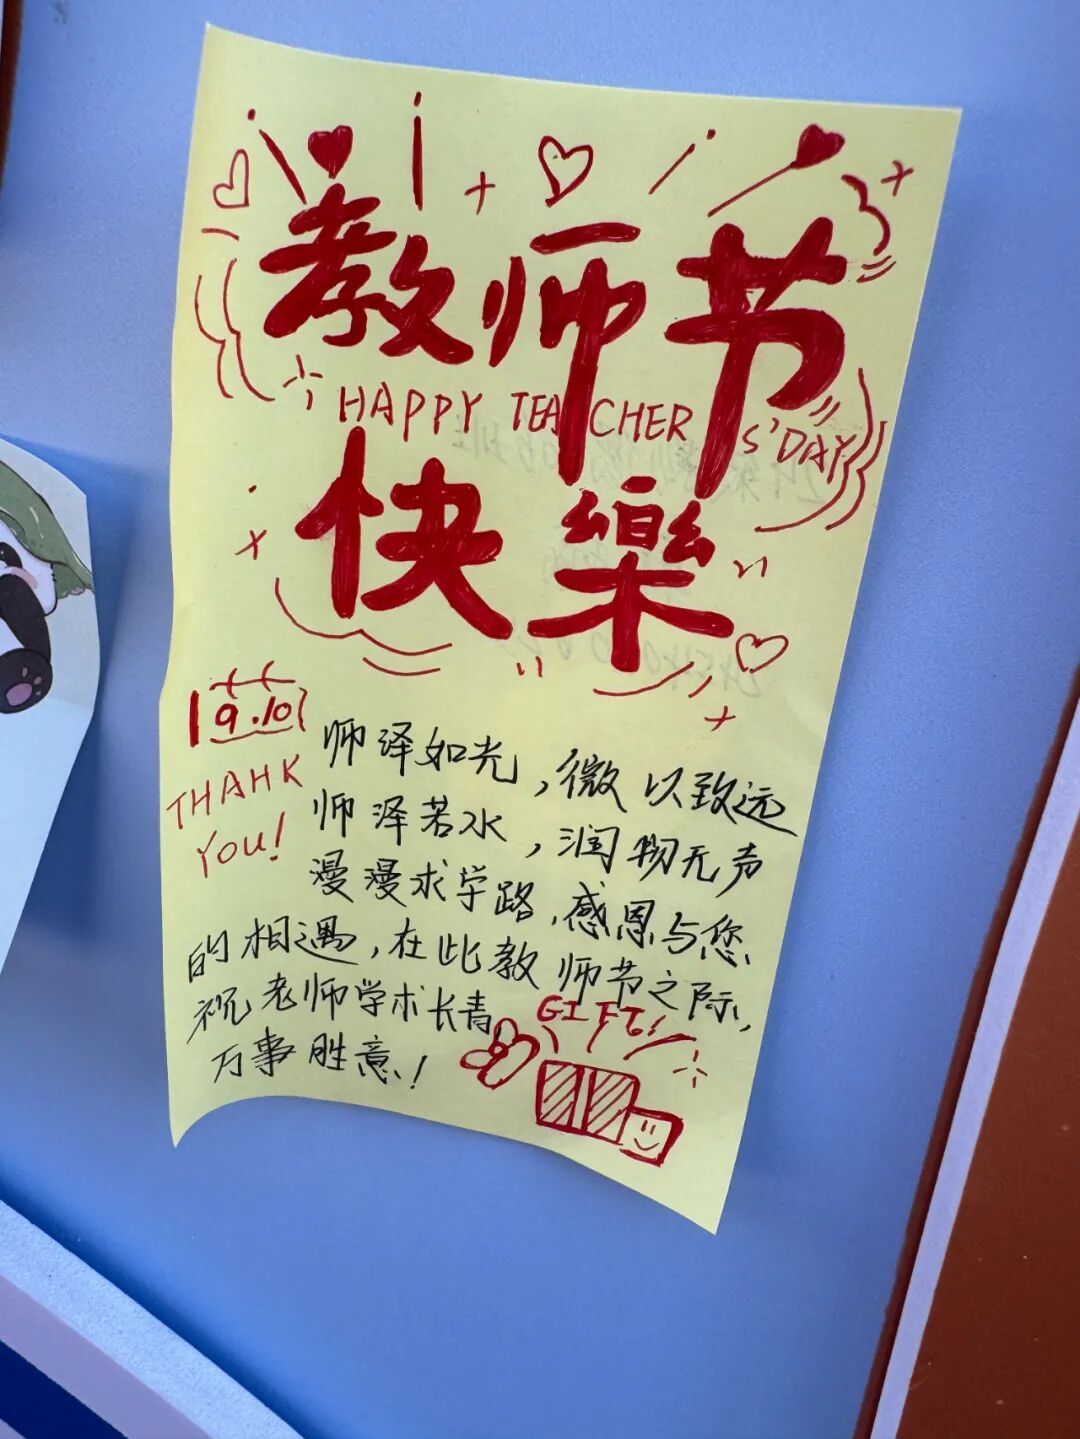 教师节
HAPPY TEACHERS'DAY
快樂
9.10
THAHK
YOU!
师泽如光,微以致远
师泽若水,润物无声
漫漫求学路,感恩与您
的相遇,在此教师节之际,
祝老师学术长青,
万事胜意!
GIFT!